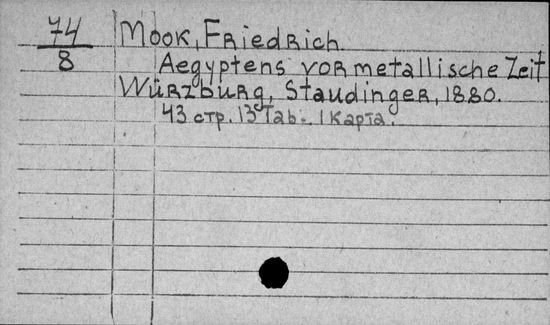 74
8
Mook, Friedrich
Aegyptens vormetallische Zeit
Würzburg, Staudinger, 1880.
43 стр. 13 Tab. 1 карта.